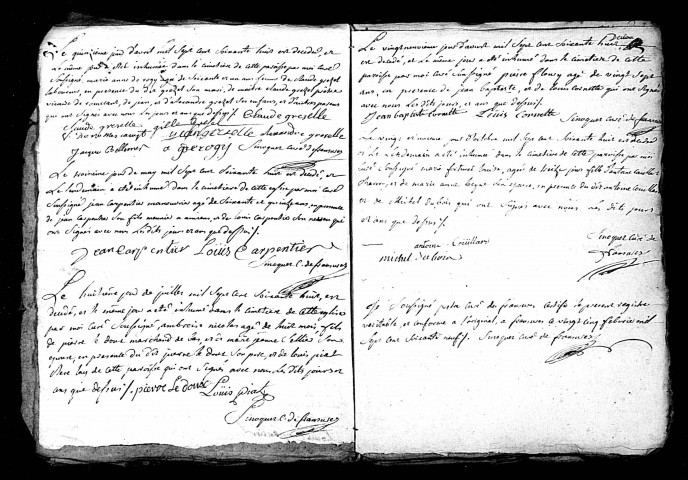 Le quinzieme jour d'avril mil sept cens soixante huit est decedée, et
le même jour a été inhumée dans le cimetiere de cette paroisse par moi curé
soussigné marie anne de rogy agée de soixante et un ans femme de claude grosel
laboureur, en presence du dit grosel son mari, de maitre claude grosel prêtre
vicaire de de jean, et d'alexandre grosel ses enfans, et
qui ont signés avec nous les jours et an que dessus. Claude greselle
greselle alexandre greselle
Jacque Bellemer a gerogy Senoquer curé de fransures
Le troisieme jour de may mil sept cens soixante huit est decedé, et
le lendemain a été inhumé dans le cimetiere de cette eglise par moi curé
soussigné jean carpentier manouvrier agé de soixante et quinze ans, en presence
de jean carpentier son fils menuier a amiens, et de louis carpentier son neveu qui
ont signés avec nous les dits jours et an que dessus.
Jean Carpentier Loüis Carpentier
Senoquer C. de fransures
Le huitieme jour de juillet mil sept cens soixante huit, est
decedé, et le même jour a été inhumé dans le cimetiere de cette eglise
par moi curé soussigné ambroise nicolas agé de huit mois, fils
de pierre le doux marchand de bas, et de marie jeanne sellier son
epouse, en presence du dit pierre le doux son pere, et de louis piat
clerc lais de cette paroisse qui ont signés avec nous les dits jours et
an que dessus. pierre le doux Loüis piat
Senoquer C. de fransures
Le vingt neuvieme jour d'aoust mil sept cens soixante huit
est decedé, et le même jour a été inhumé dans le cimetiere de cette
paroisse par moi curé soussigné pierre fleury agé de vingt sept
ans, en presence de jean baptiste, et de louis cornette qui ont signés
avec nous les dits jours, et an que dessus.
Jean Baptiste Cornette Loüis Cornette Senoquer curé de fransures
Le vingt et neuvieme jour d'octobre mil sept cens soixante huit est decedée
et le lendemain a été inhumée dans le cimetiere de cette paroisse par moi
curé soussigné marie agée de jours fille d'antoine couillart
et de marie anne son epouse, en presence du dit antoine couillart
et de Michel dubois qui ont signés avec nous les dits jours
et an que dessus.
antoine Couillart Senoquer Curé de
michel dubois fransures
Je soussigné prêtre curé de fransures certifie le present registre
veritable, et conforme a l'original, a fransures ce vingt cinq fevrier mil
sept cens soixante neuf. Senoquer curé de fransures